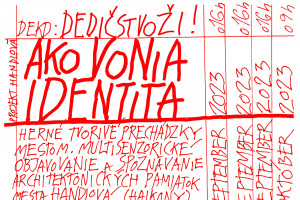 DEKD: DEDIČSTVO ŽI!
PROJEKT HANDLOVÁ
AKO VONIA
IDENTITA
HERNÉ TVORIVÉ PRECHÁDZKY
MESTOM. MULTISENZORICKÉ
OBJAVOVANIE A SPOZNÁVANIE
ARCHITEKTONICKÝCH PAMIATOK
MESTA HANDLOVÁ (BALKÓNY)
SEPTEMBER 2023 016h
SEPTEMBER 2023 016h
SEPTEMBER 2023 016h
OKTÓBER 2023 09h